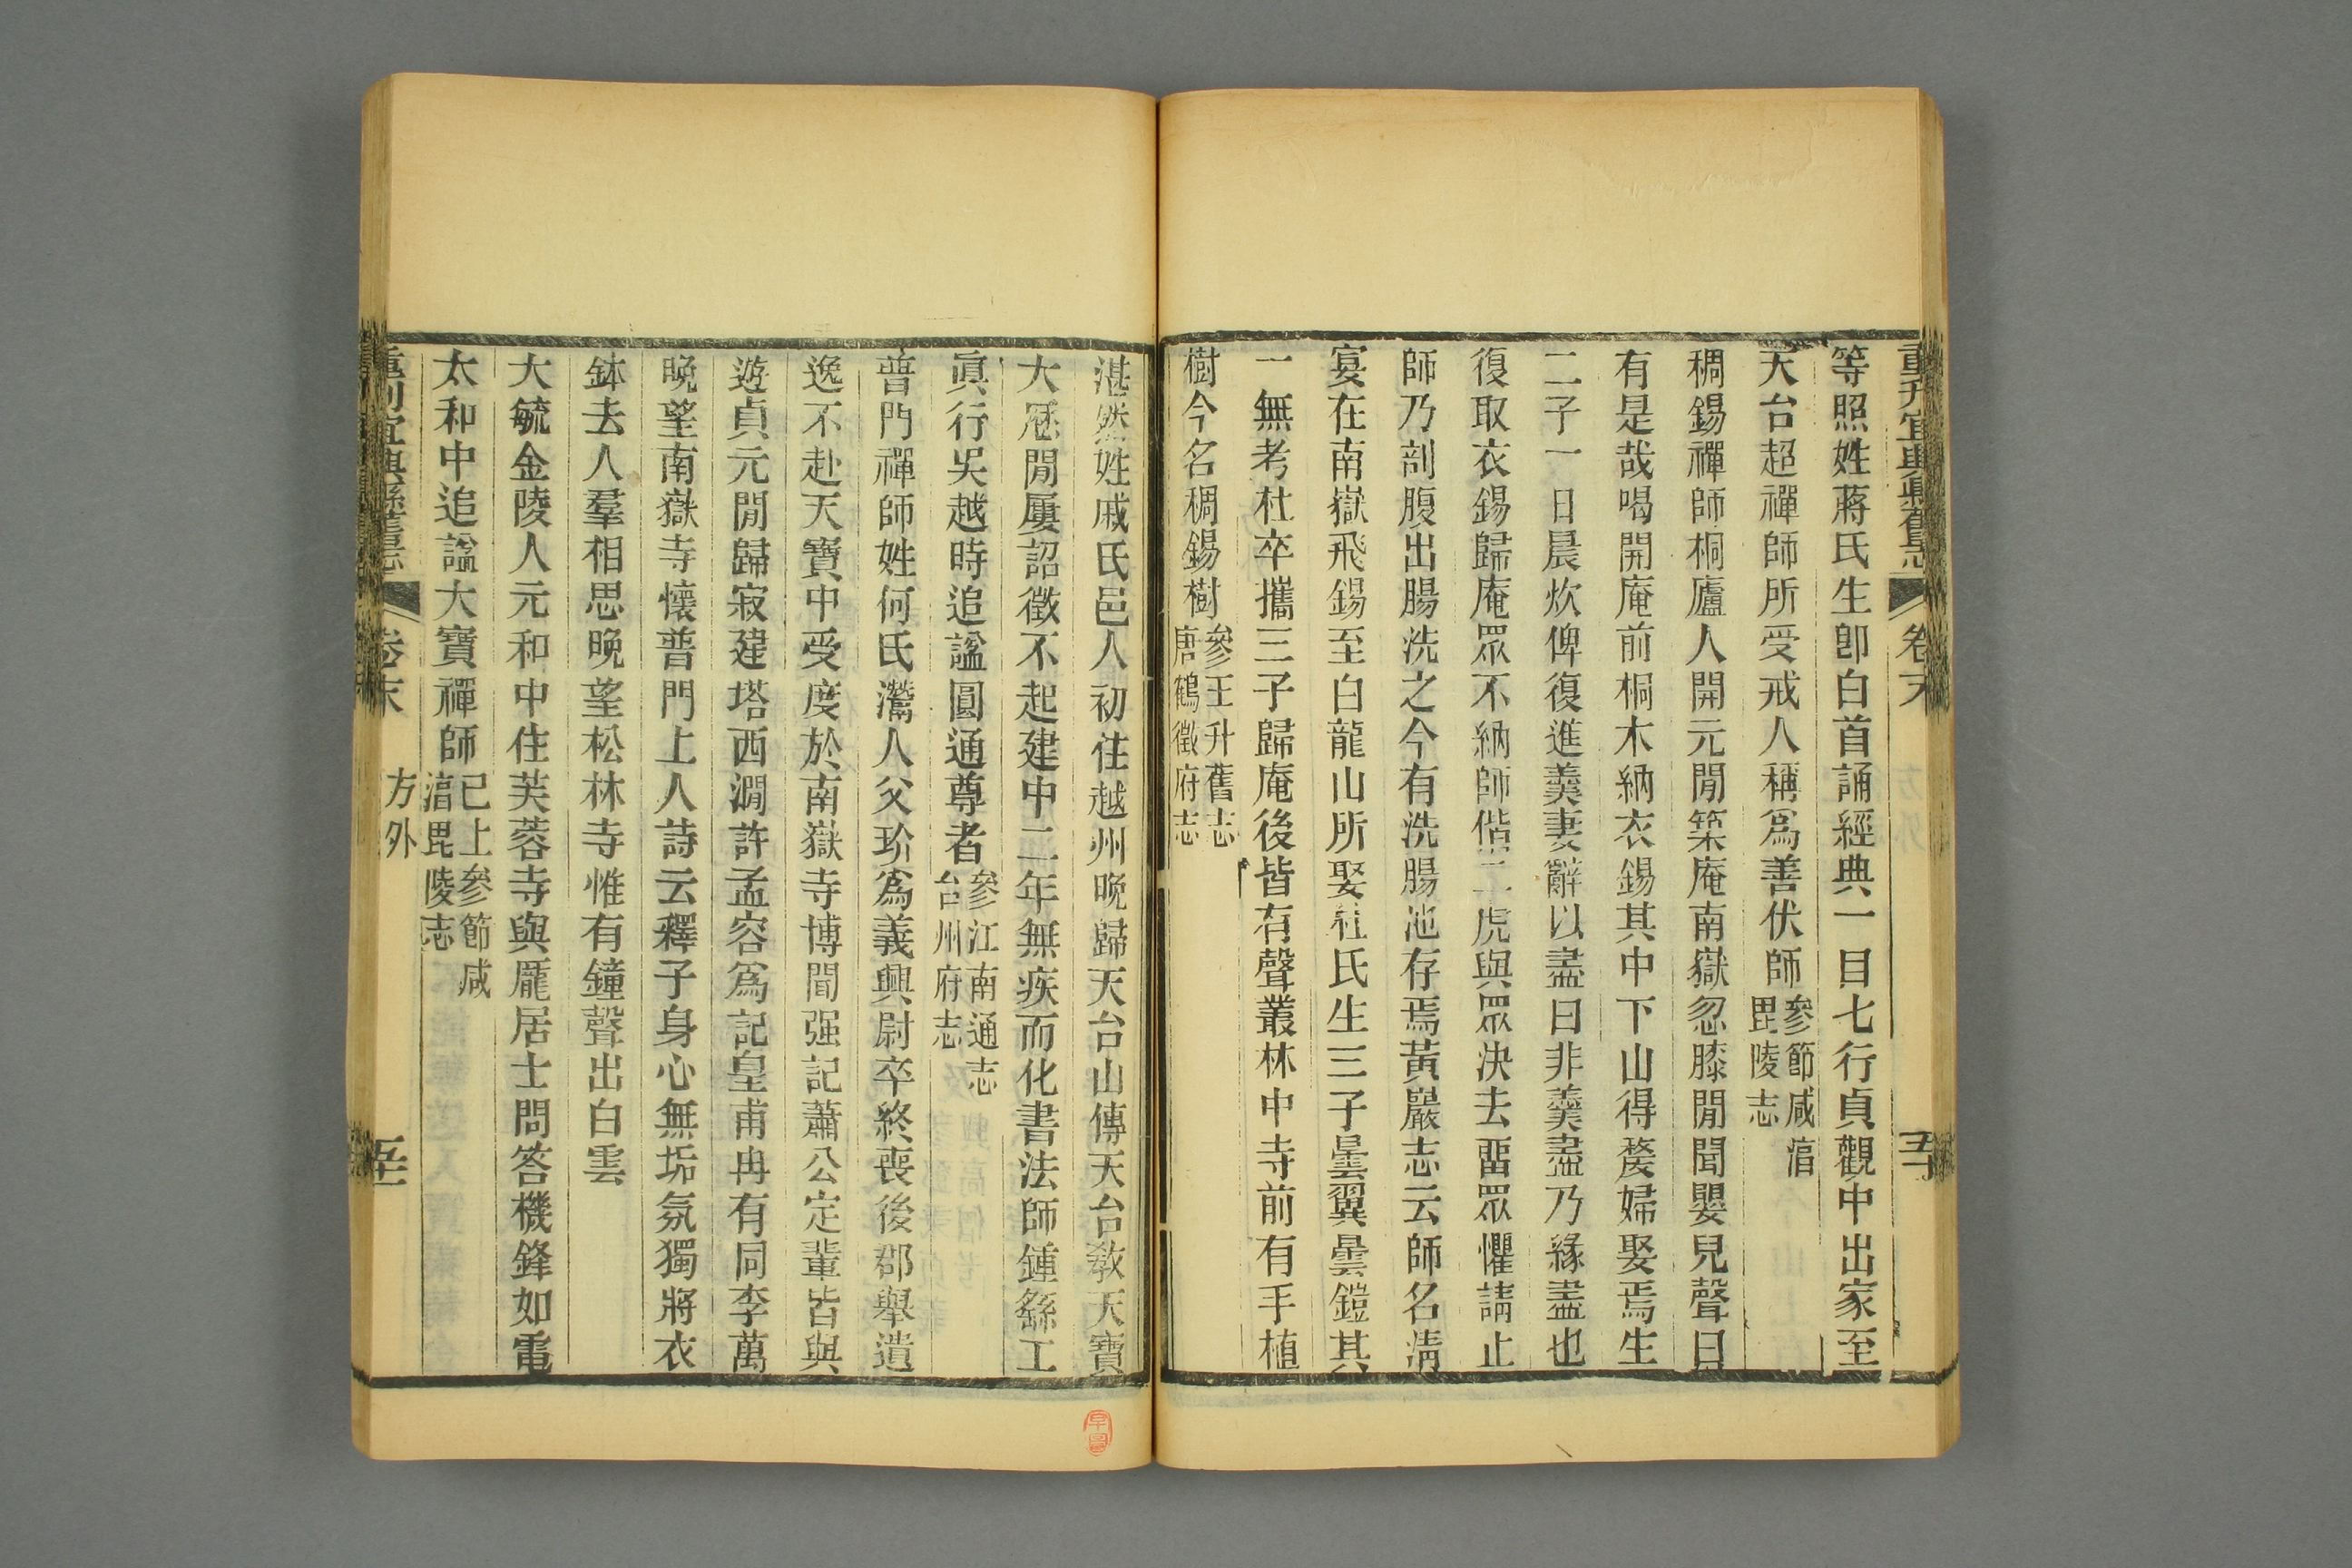 重刋宜興縣舊志 卷末 五十
等照姓蔣氏生卽白首誦經典一目七行貞觀中出家至
天台超禪師所受戒人稱爲善伏師參節咸湻毘陵志
稠錫禪師桐廬人開元閒築庵南嶽忽膝閒聞嬰兒聲曰
有是哉喝開庵前桐木納衣錫其中下山得嫠婦娶焉生
二子一日晨炊俾復進羹妻辭以盡曰非羹盡乃緣盡也
復取衣錫歸庵眾不納師偕二虎與眾決去畱眾懼請止
師乃剖腹出腸洗之今有洗腸池存焉黃巖志云師名淸
宴在南嶽飛錫至白龍山所娶杜氏生三子曇翼曇鎧其
一無考杜卒攜三子歸庵後皆有聲叢林中寺前有手植
樹今名稠錫樹參王升舊志唐鶴徵府志
湛然姓戚氏邑人初往越州晚歸天台山傳天台敎天寶
大厯閒屢詔徵不起建中二年無疾而化書法師鍾繇工
眞行吳越時追謚圓通尊者參江南通志台州府志
普門禪師姓何氏灊人父珍爲義興尉卒終喪後郡舉遺
逸不赴天寶中受度於南嶽寺博聞强記蕭公定輩皆與
遊貞元閒歸寂建塔西澗許孟容爲記皇甫冉有同李萬
晚望南嶽寺懷普門上人詩云釋子身心無垢氛獨將衣
鉢去人羣相思晚望松林寺惟有鐘聲出白雲
大毓金陵人元和中住芙蓉寺與龐居士問答機鋒如電
太和中追謚大寶禪師已上參節咸湻毘陵志
重刋宜興縣舊志 卷末 方外 五十一